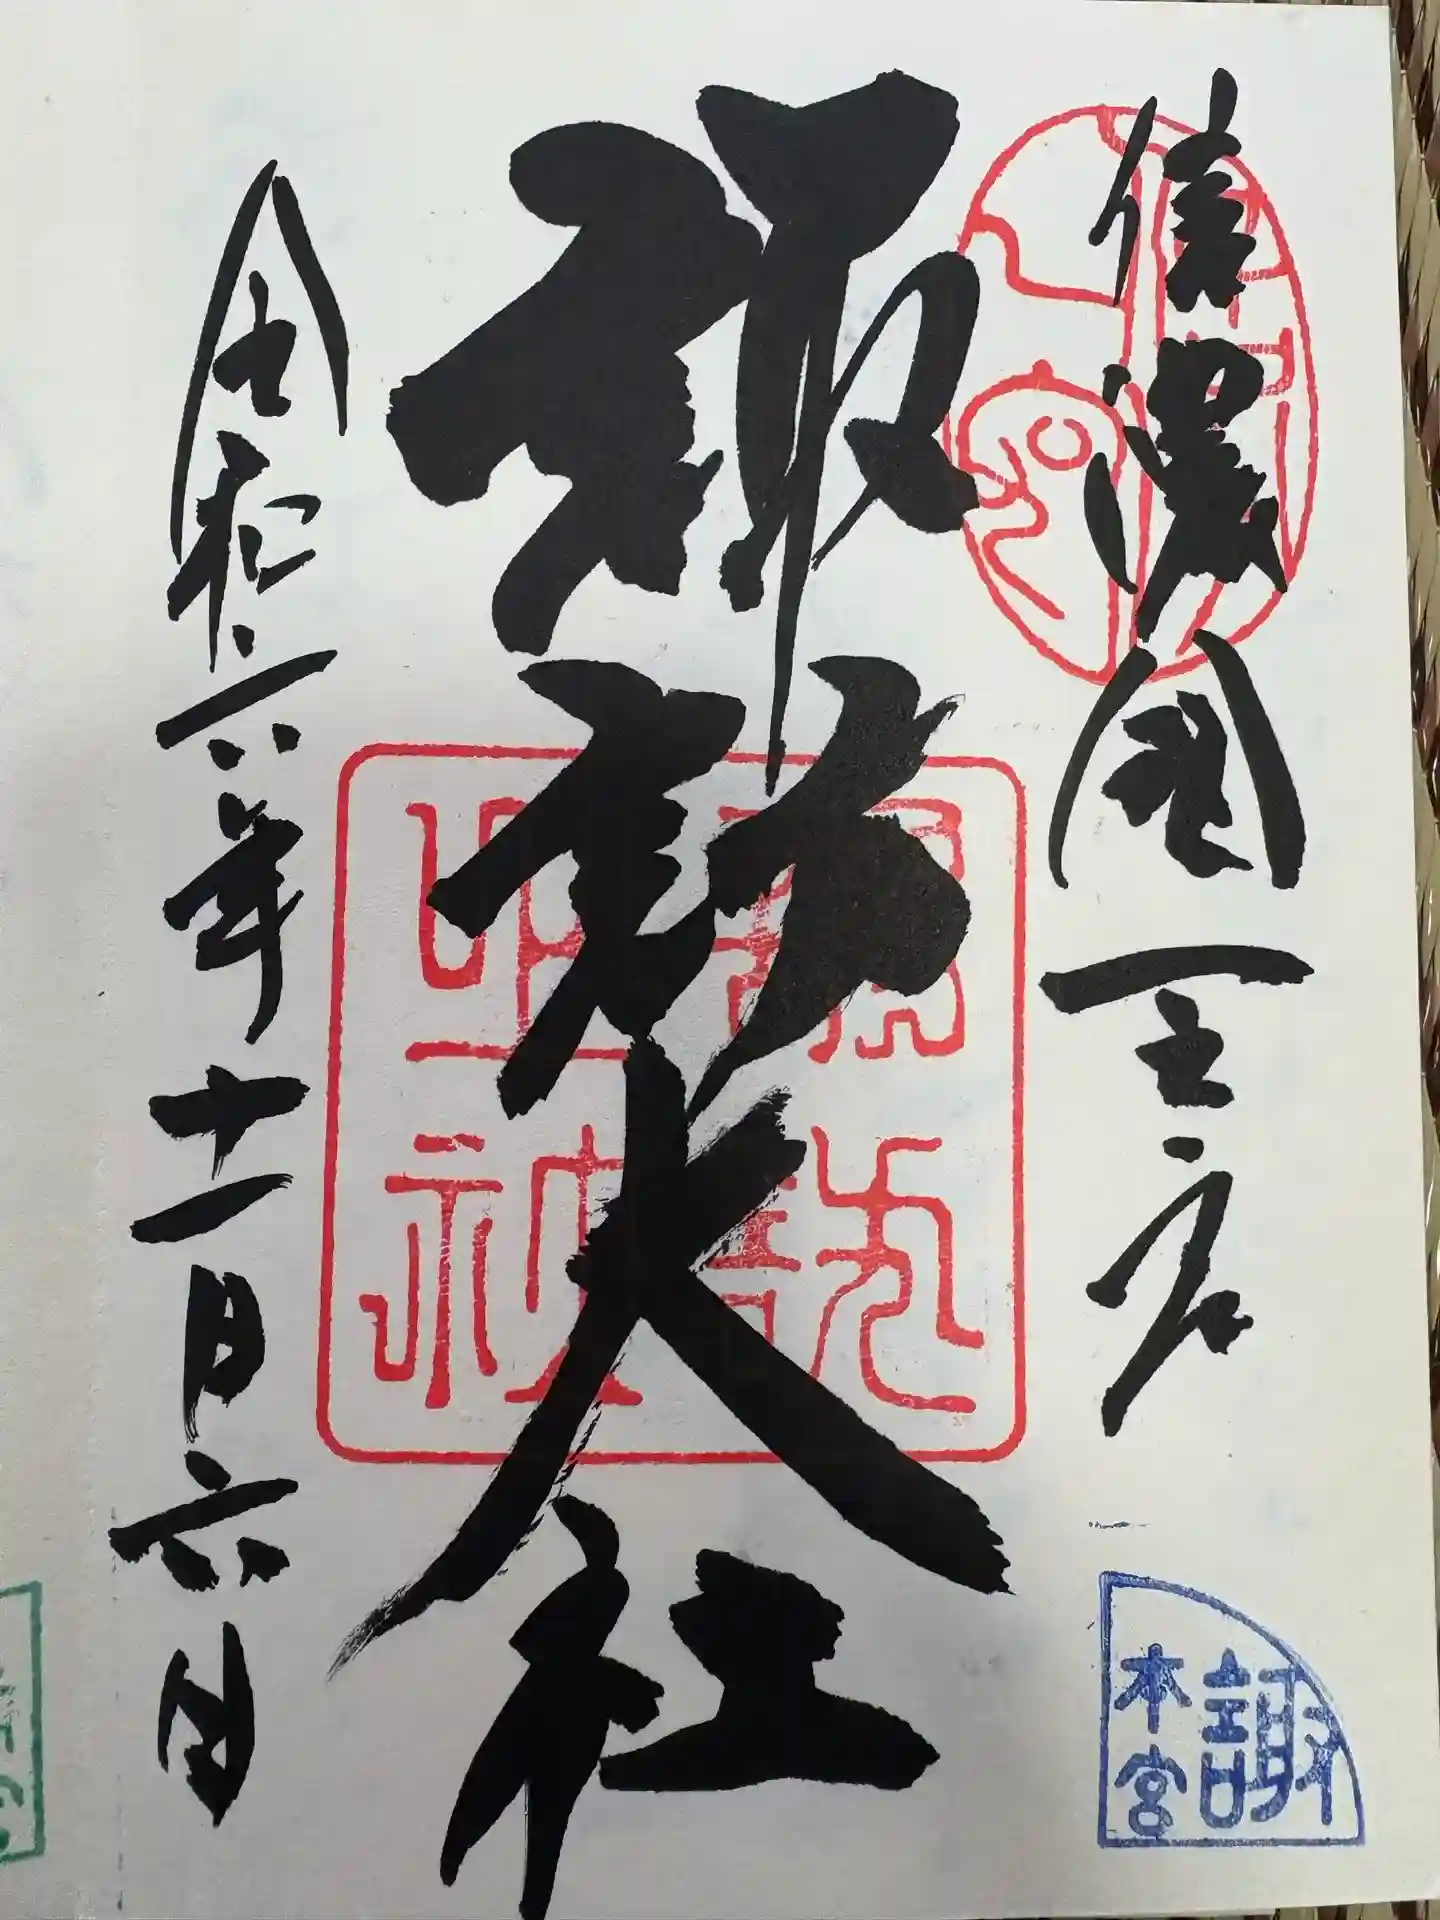 信濃國一之宮
諏訪大社
令和六年十一月六日
諏
本宮